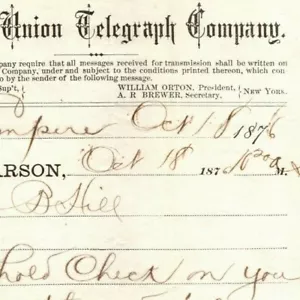 Union Telegraph Company.
pany require that all messages received for transmission shall be written on
Company, under and subject to the conditions printed thereon, which con
by the sender of the following message.
Sup't, } { WILLIAM ORTON, President, } NEW YORK.
A. R. BREWER, Secretary.
Oct 18 1876
ARSON, Oct 18 1876 M.
B Hill
hold Check on you